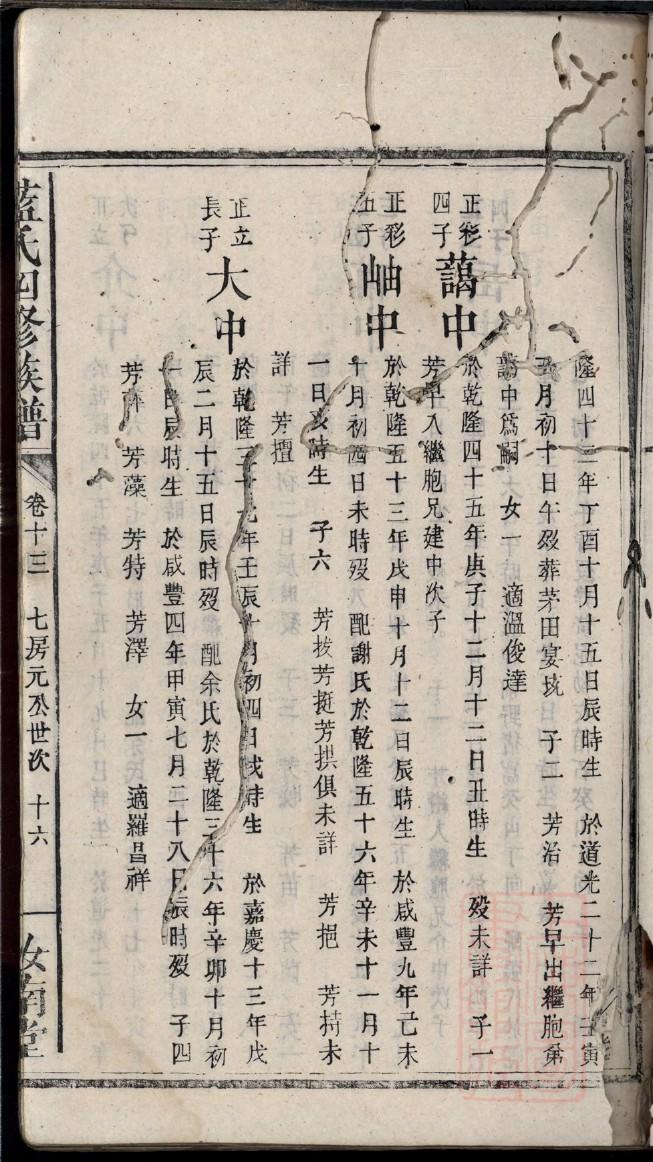 隆四十二年丁酉十月十五日辰時生 於道光二十二年壬寅
五月初十日午歿葬茅田宴垸 子二 芳治 芳早出繼胞弟
藹中為嗣 女一 適溫俊達
正彩
四子
藹中
於乾隆四十五年庚子十二月十二日丑時生 歿未詳 子一
芳早入繼胞兄建中次子
正彩
五子
岫中
於乾隆五十三年戊申十月十二日辰時生 於咸豐九年己未
十月初四日未時歿 配謝氏於乾隆五十六年辛未十一月十
一日亥時生 子六 芳拔芳挺芳拱俱未詳 芳挹 芳持未
詳 芳擅
正立
長子
大中
於乾隆三十七年壬辰十月初四日戌時生 於嘉慶十三年戊
辰二月十五日辰時歿 配余氏於乾隆三十六年辛卯十月初
一日辰時生 於咸豐四年甲寅七月二十八日辰時歿 子四
芳薛 芳藻 芳特 芳澤 女一 適羅昌祥
藍氏四修族譜
卷十三 七房元公世次 十六
汝南堂